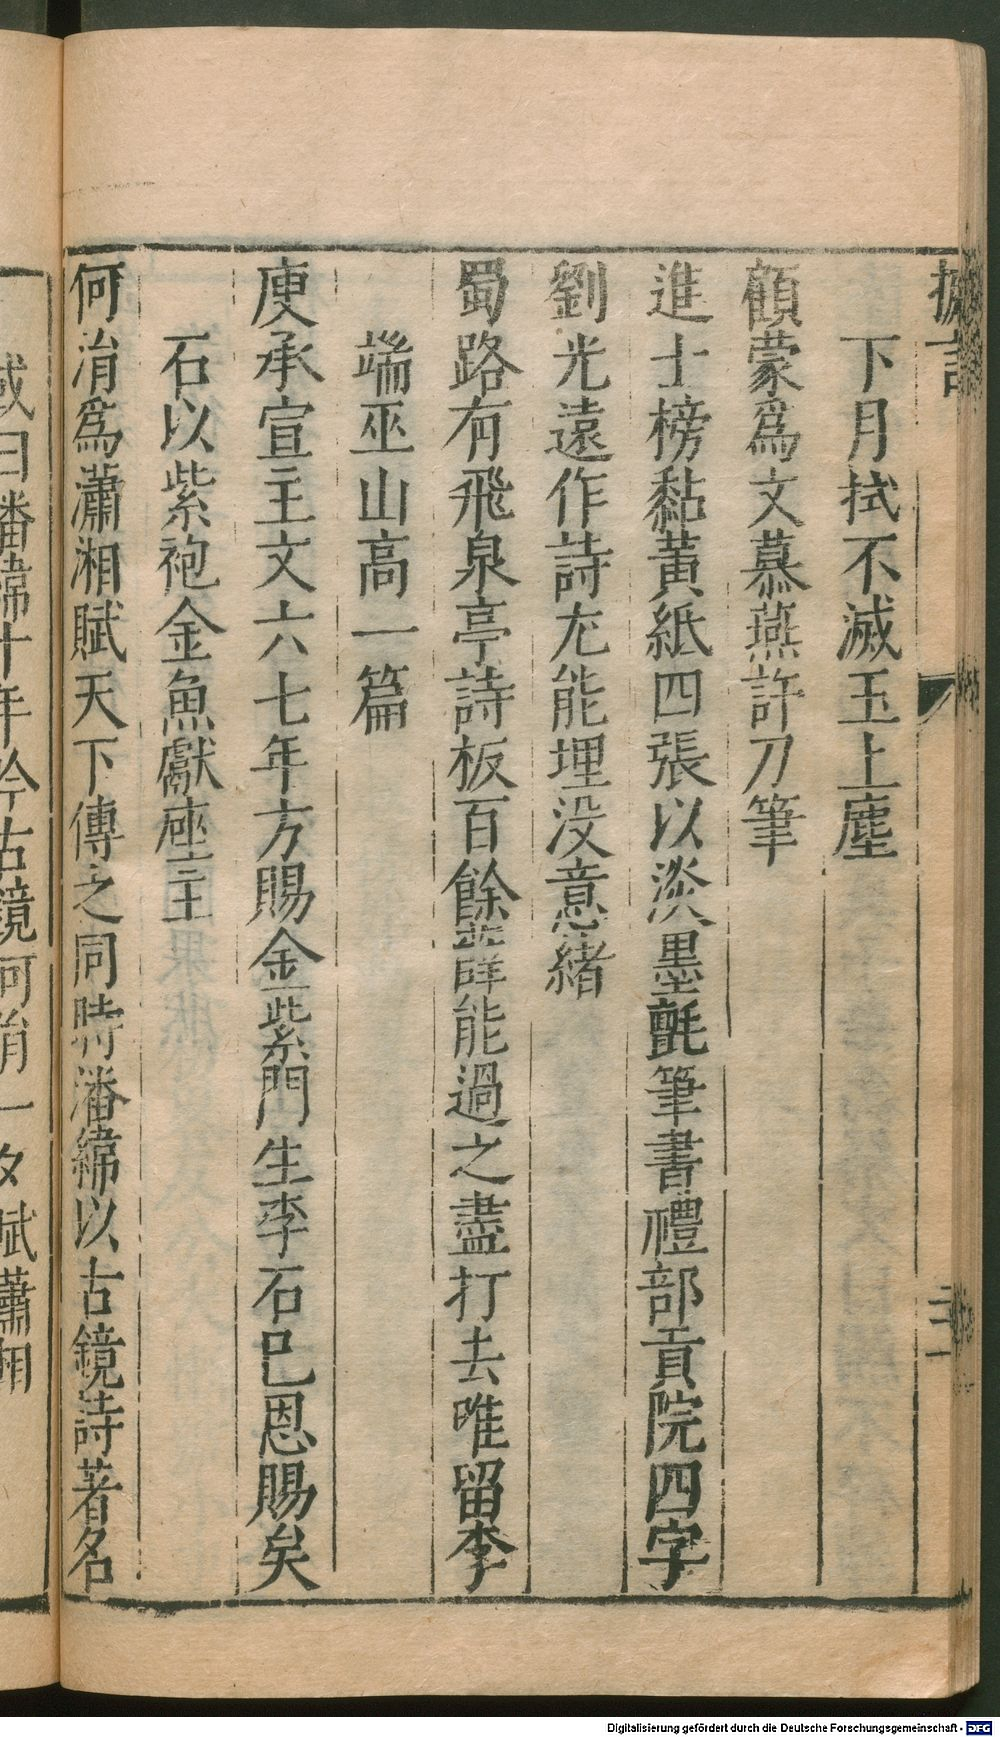 摭言
二
下月拭不滅玉上塵
顧蒙爲文慕燕許刀筆
進士榜黏黃紙四張以淡墨氈筆書禮部貢院四字
劉光遠作詩尤能埋没意緒
蜀路有飛泉亭詩板百餘薛能過之盡打去唯留李
端巫山高一篇
庾承宣主文六七年方賜金紫門生李石已恩賜矣
石以紫袍金魚獻座主
何涓爲瀟湘賦天下傳之同時潘緯以古鏡詩著名
或曰潘緯十年吟古鏡何涓一夕賦瀟湘
Digitalisierung gefördert durch die Deutsche Forschungsgemeinschaft - DFG